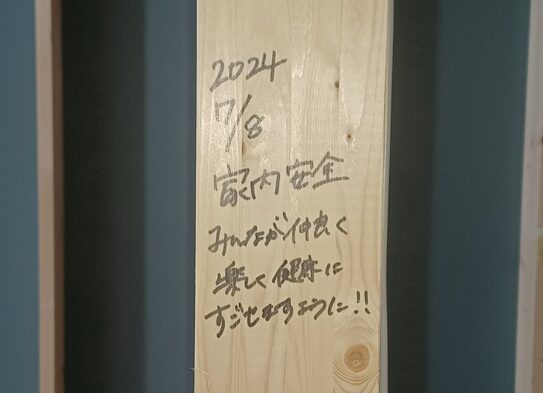 2024
7/8
家内安全
みんなが仲良く
楽しく健康に
すごせますように!!